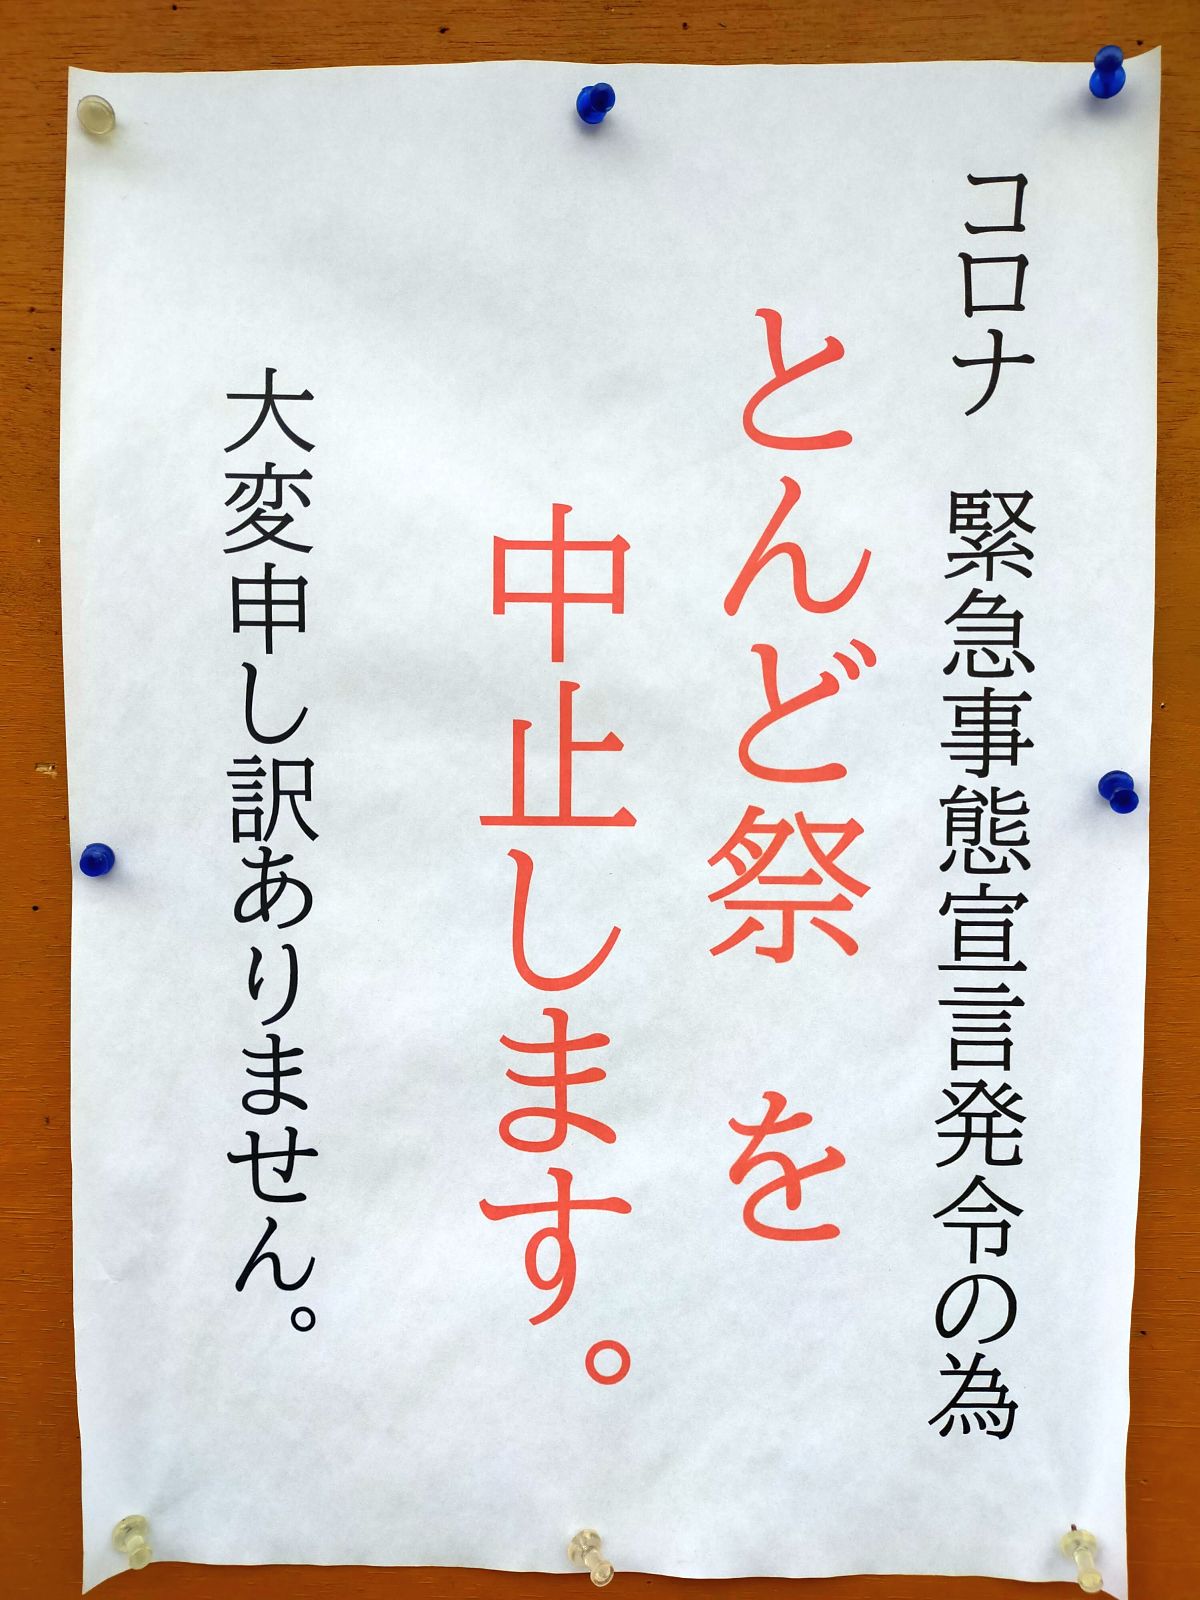 コロナ 緊急事態宣言発令の為
とんど祭 を
中止します。
大変申し訳ありません。